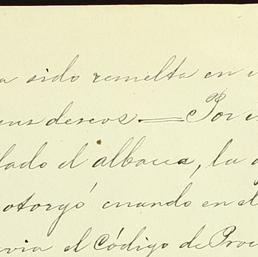 a sido remelta en
sus deseos.— Por
lado el albacea, la
otorgó cuando en el
evia el Código de Proce